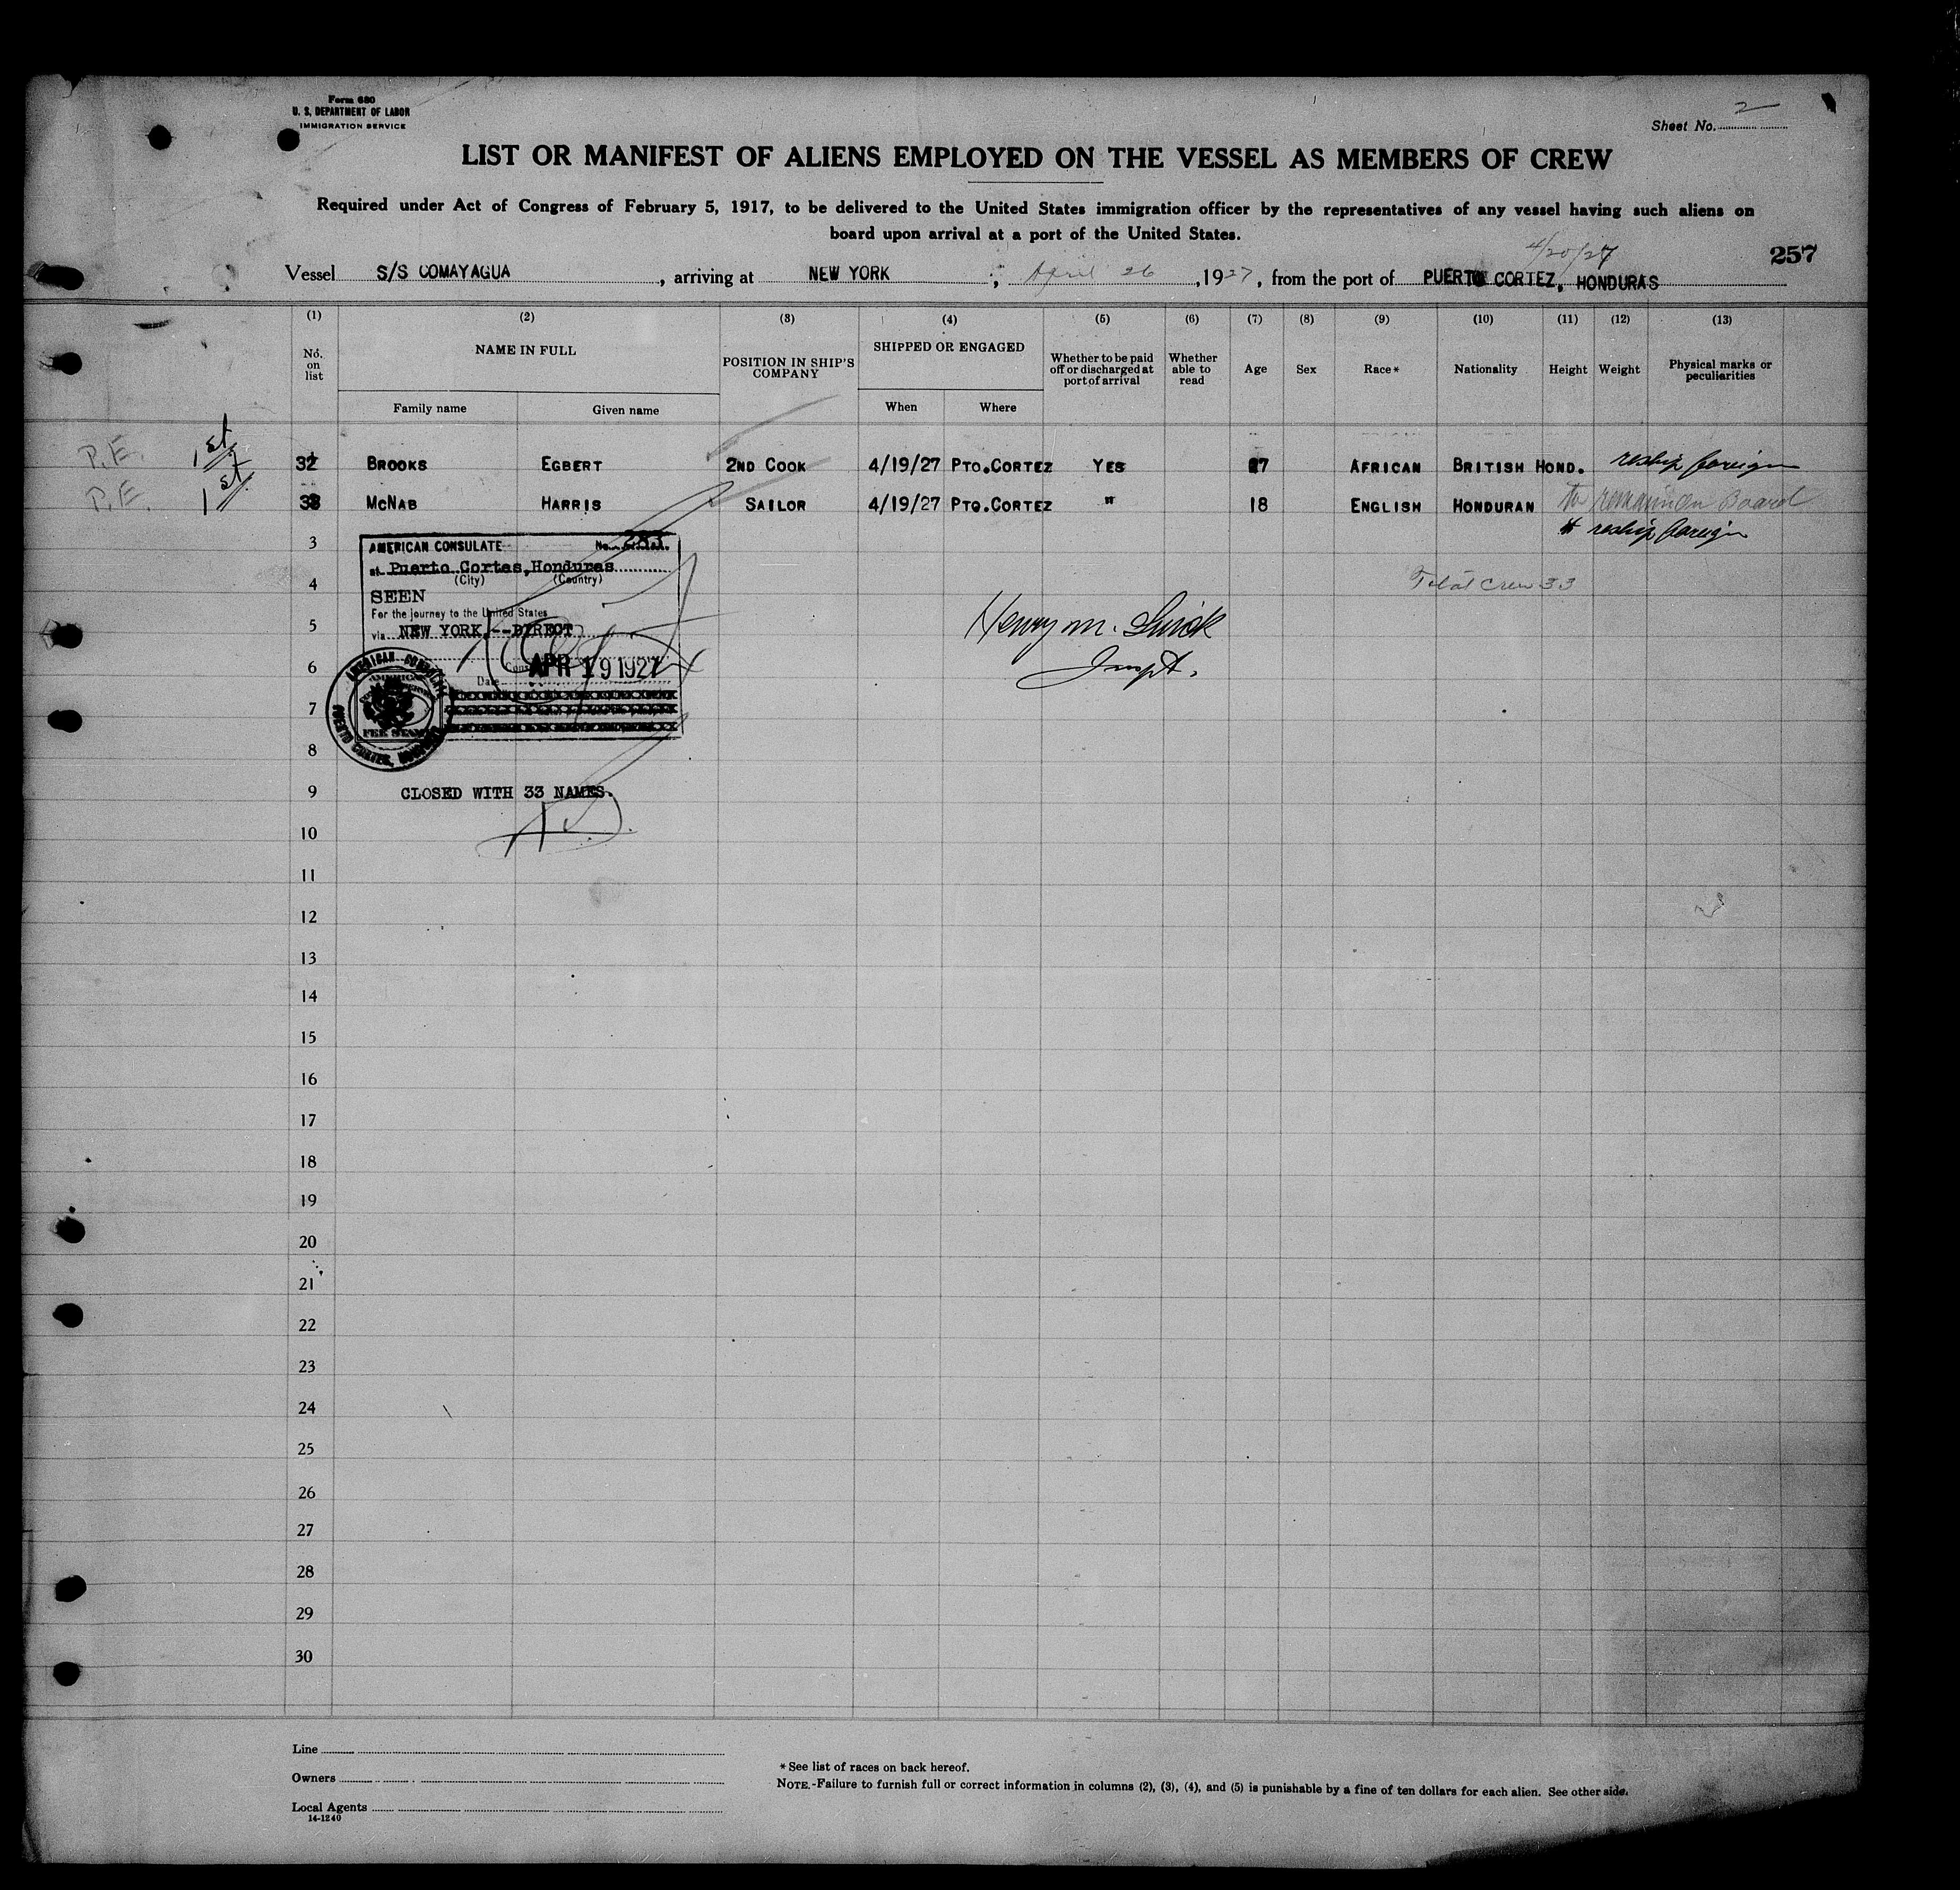 Form 680
U. S. DEPARTMENT OF LABOR
IMMIGRATION SERVICE
Sheet No. 2
LIST OR MANIFEST OF ALIENS EMPLOYED ON THE VESSEL AS MEMBERS OF CREW
Required under Act of Congress of February 5, 1917, to be delivered to the United States immigration officer by the representatives of any vessel having such aliens on
board upon arrival at a port of the United States.
4/20/27
257
Vessel S/S COMAYAGUA, arriving at NEW YORK, April 26, 1927, from the port of PUERTO CORTEZ, HONDURAS
(1) (2) (3) (4) (5) (6) (7) (8) (9) (10) (11) (12) (13)
No. on list NAME IN FULL POSITION IN SHIP'S COMPANY SHIPPED OR ENGAGED Whether to be paid off or discharged at port of arrival Whether able to read Age Sex Race* Nationality Height Weight Physical marks or peculiarities
Family name Given name When Where
P.E. 1st 32 BROOKS EGBERT 2ND COOK 4/19/27 PTO.CORTEZ YES 27 AFRICAN BRITISH HOND. reship foreign
P.E. 1st 33 MCNAB HARRIS SAILOR 4/19/27 PTO.CORTEZ " 18 ENGLISH HONDURAN to remain on Board
reship foreign
3
AMERICAN CONSULATE No.
at Puerto Cortes, Honduras
(City) (Country)
4 Total Crew 33
SEEN
For the journey to the United States
5 via NEW YORK.--DIRECT Henry M.
6 Date APR 19 1927 Inspt.
AMERICAN CONSULATE
AMERICAN
FEE STAMP
PUERTO CORTES, HONDURAS
7
8
9 CLOSED WITH 33 NAMES.
10
11
12
13
14
15
16
17
18
19
20
21
22
23
24
25
26
27
28
29
30
Line
Owners
Local Agents
14-1240
* See list of races on back hereof.
NOTE.-Failure to furnish full or correct information in columns (2), (3), (4), and (5) is punishable by a fine of ten dollars for each alien. See other side.